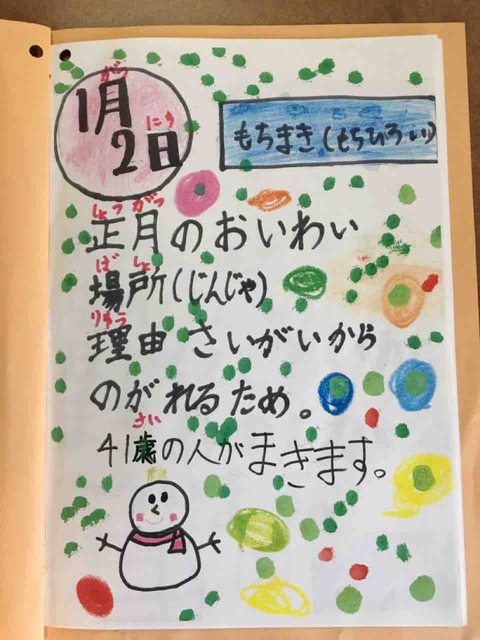 1月
がつ
2日
にち
もちまき(もちひろい)
しょうがつ
正月のおいわい
ばしょ
場所(じんじゃ)
りゆう
理由 さいがいから
のがれるため。
さい
41歳の人がまきます。